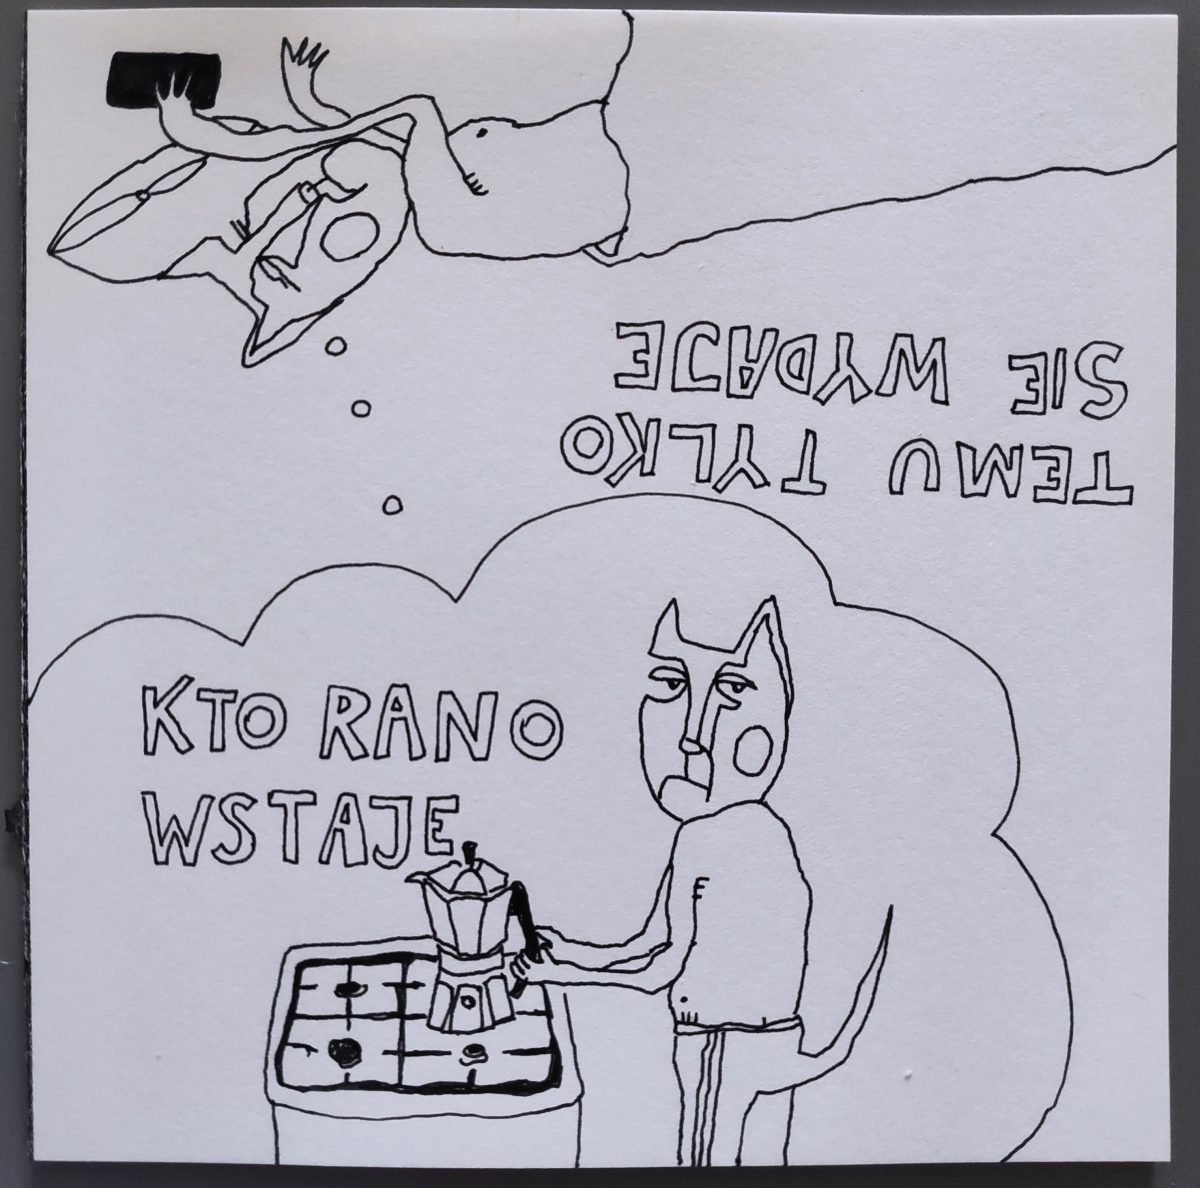 KTO RANO
WSTAJE
TEMU TYLKO
SIE WYDAJE